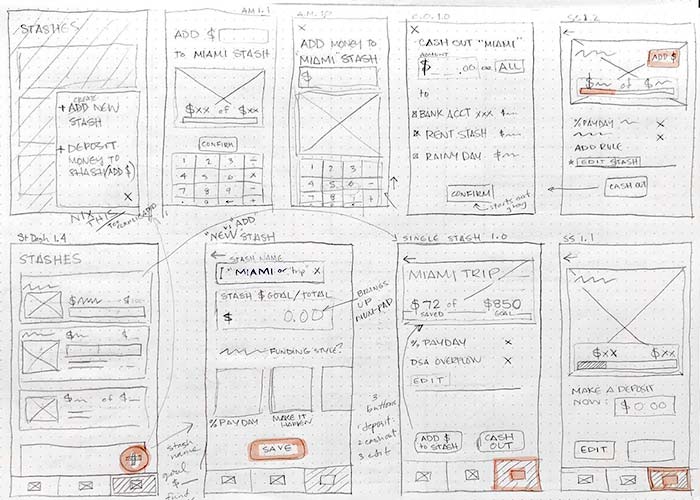 STASHES
CREATE
+ ADD NEW
STASH
+ DEPOSIT
MONEY TO
STASH (ADD $)
X
NIX
THIS
AM 1.1
ADD $
TO MIAMI STASH
$xx of $xx
CONFIRM
1 2 3
4 5 6 X
7 8 9 -
X
ADD MONEY TO
"MIAMI" STASH
$
1 2 3
4 5 6 -
7 8 9 +
C.O. 1.0
X
CASH OUT "MIAMI"
AMOUNT
$ .00 OR ALL
TO
BANK ACCT XXX $
RENT STASH $
RAINY DAY $
CONFIRM
starts out
gray
SS 1.2
ADD $
$ of $
% PAYDAY X
X
ADD RULE
* EDIT STASH
CASH OUT
St Dash 1.4
STASHES
$
$ of $
+
stash
name
goal
$
fund
+ ADD
"NEW" STASH
STASH NAME
["MIAMI or "trip" X
STASH $ GOAL/TOTAL
$ 0.00
BRINGS
UP
NUM-PAD
FUNDING STYLE?
% PAYDAY
MAKE IT
HAPPEN
SAVE
3
buttons
1 deposit
2 cash out
3 edit
SINGLE STASH 1.0
MIAMI TRIP
$72 of $850
SAVED GOAL
% PAYDAY X
DSA OVERFLOW X
EDIT
ADD $
TO STASH
CASH
OUT
SS 1.1
$xx $xx
MAKE A DEPOSIT
NOW: $0.00
EDIT